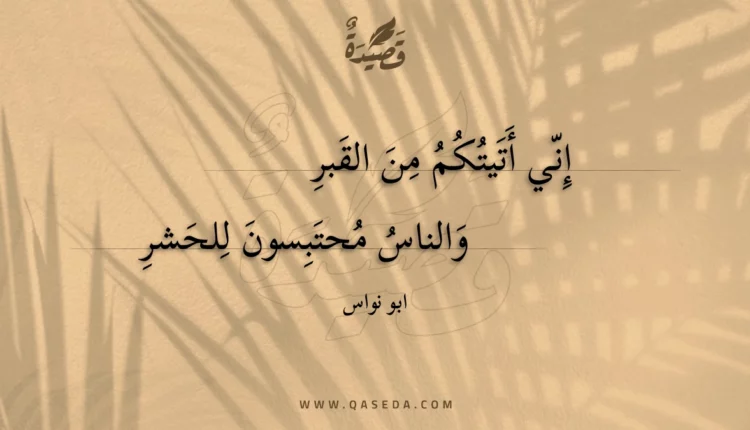 قَصِيدَةٌ
إِنّي أَتَيتُكُمُ مِنَ القَبرِ
وَالناسُ مُحتَبِسونَ لِلحَشرِ
ابو نواس
WWW.QASEDA.COM